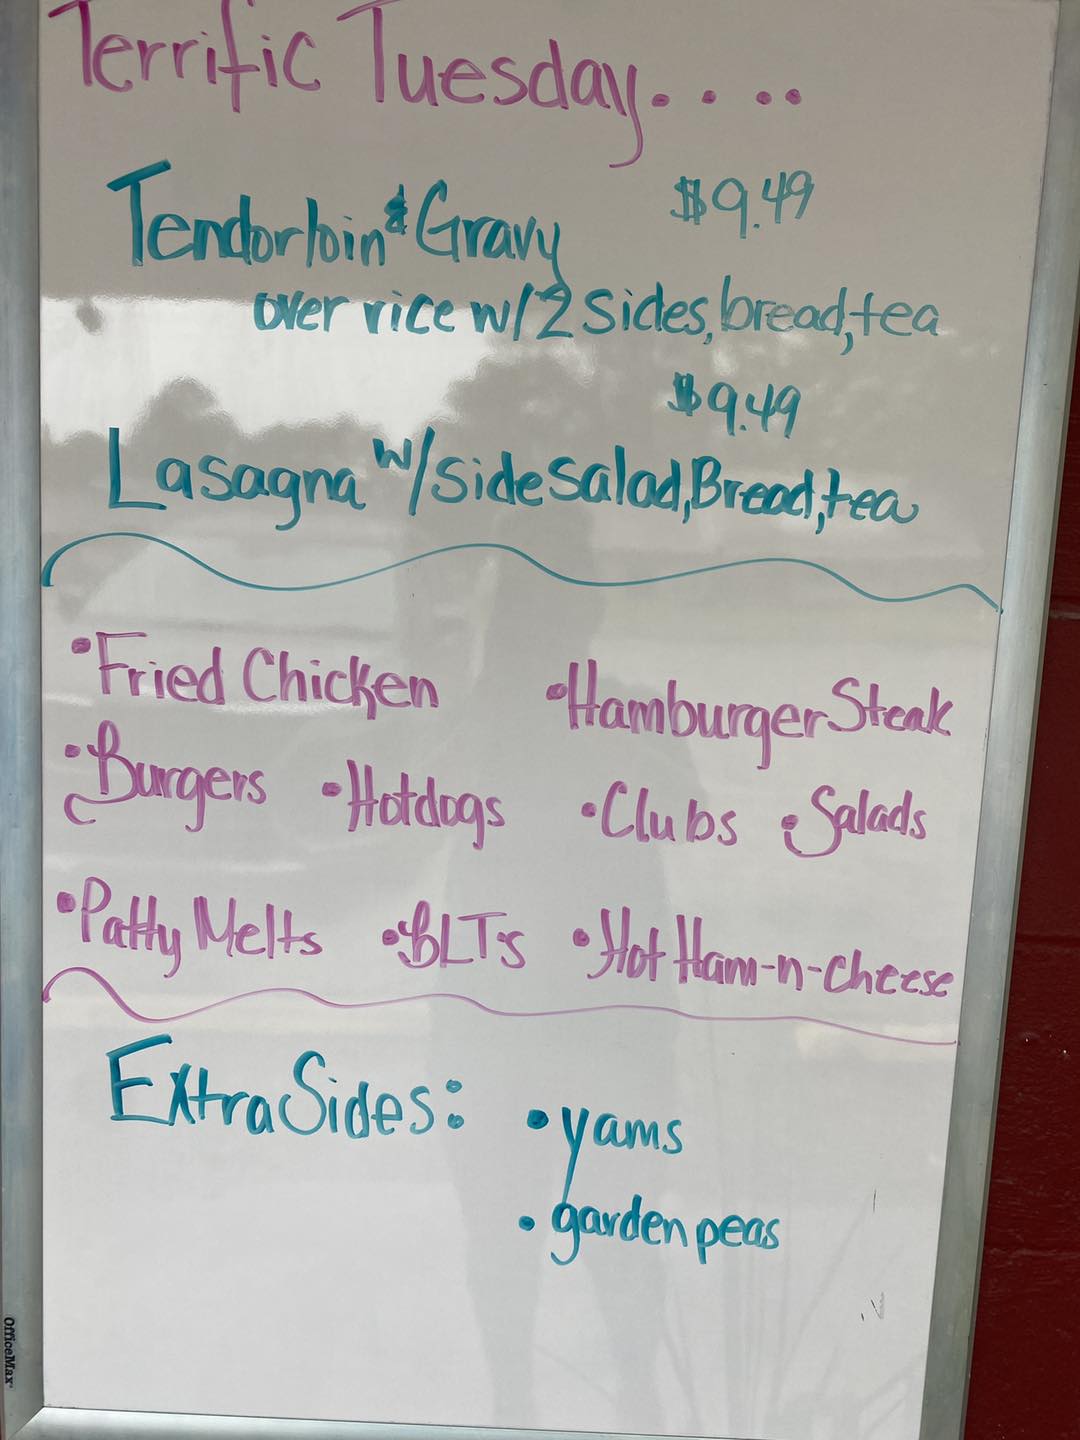 Terrific Tuesday. . . . .
Tendorloin & Gravy $9.49
over rice w/2 sides, bread, tea
$9.49
Lasagna w/side salad, Bread, tea
• Fried Chicken • Hamburger Steak
• Burgers • Hotdogs • Clubs • Salads
• Patty Melts • BLT's • Hot Ham-n-cheese
Extra Sides: • yams
• garden peas
OfficeMax